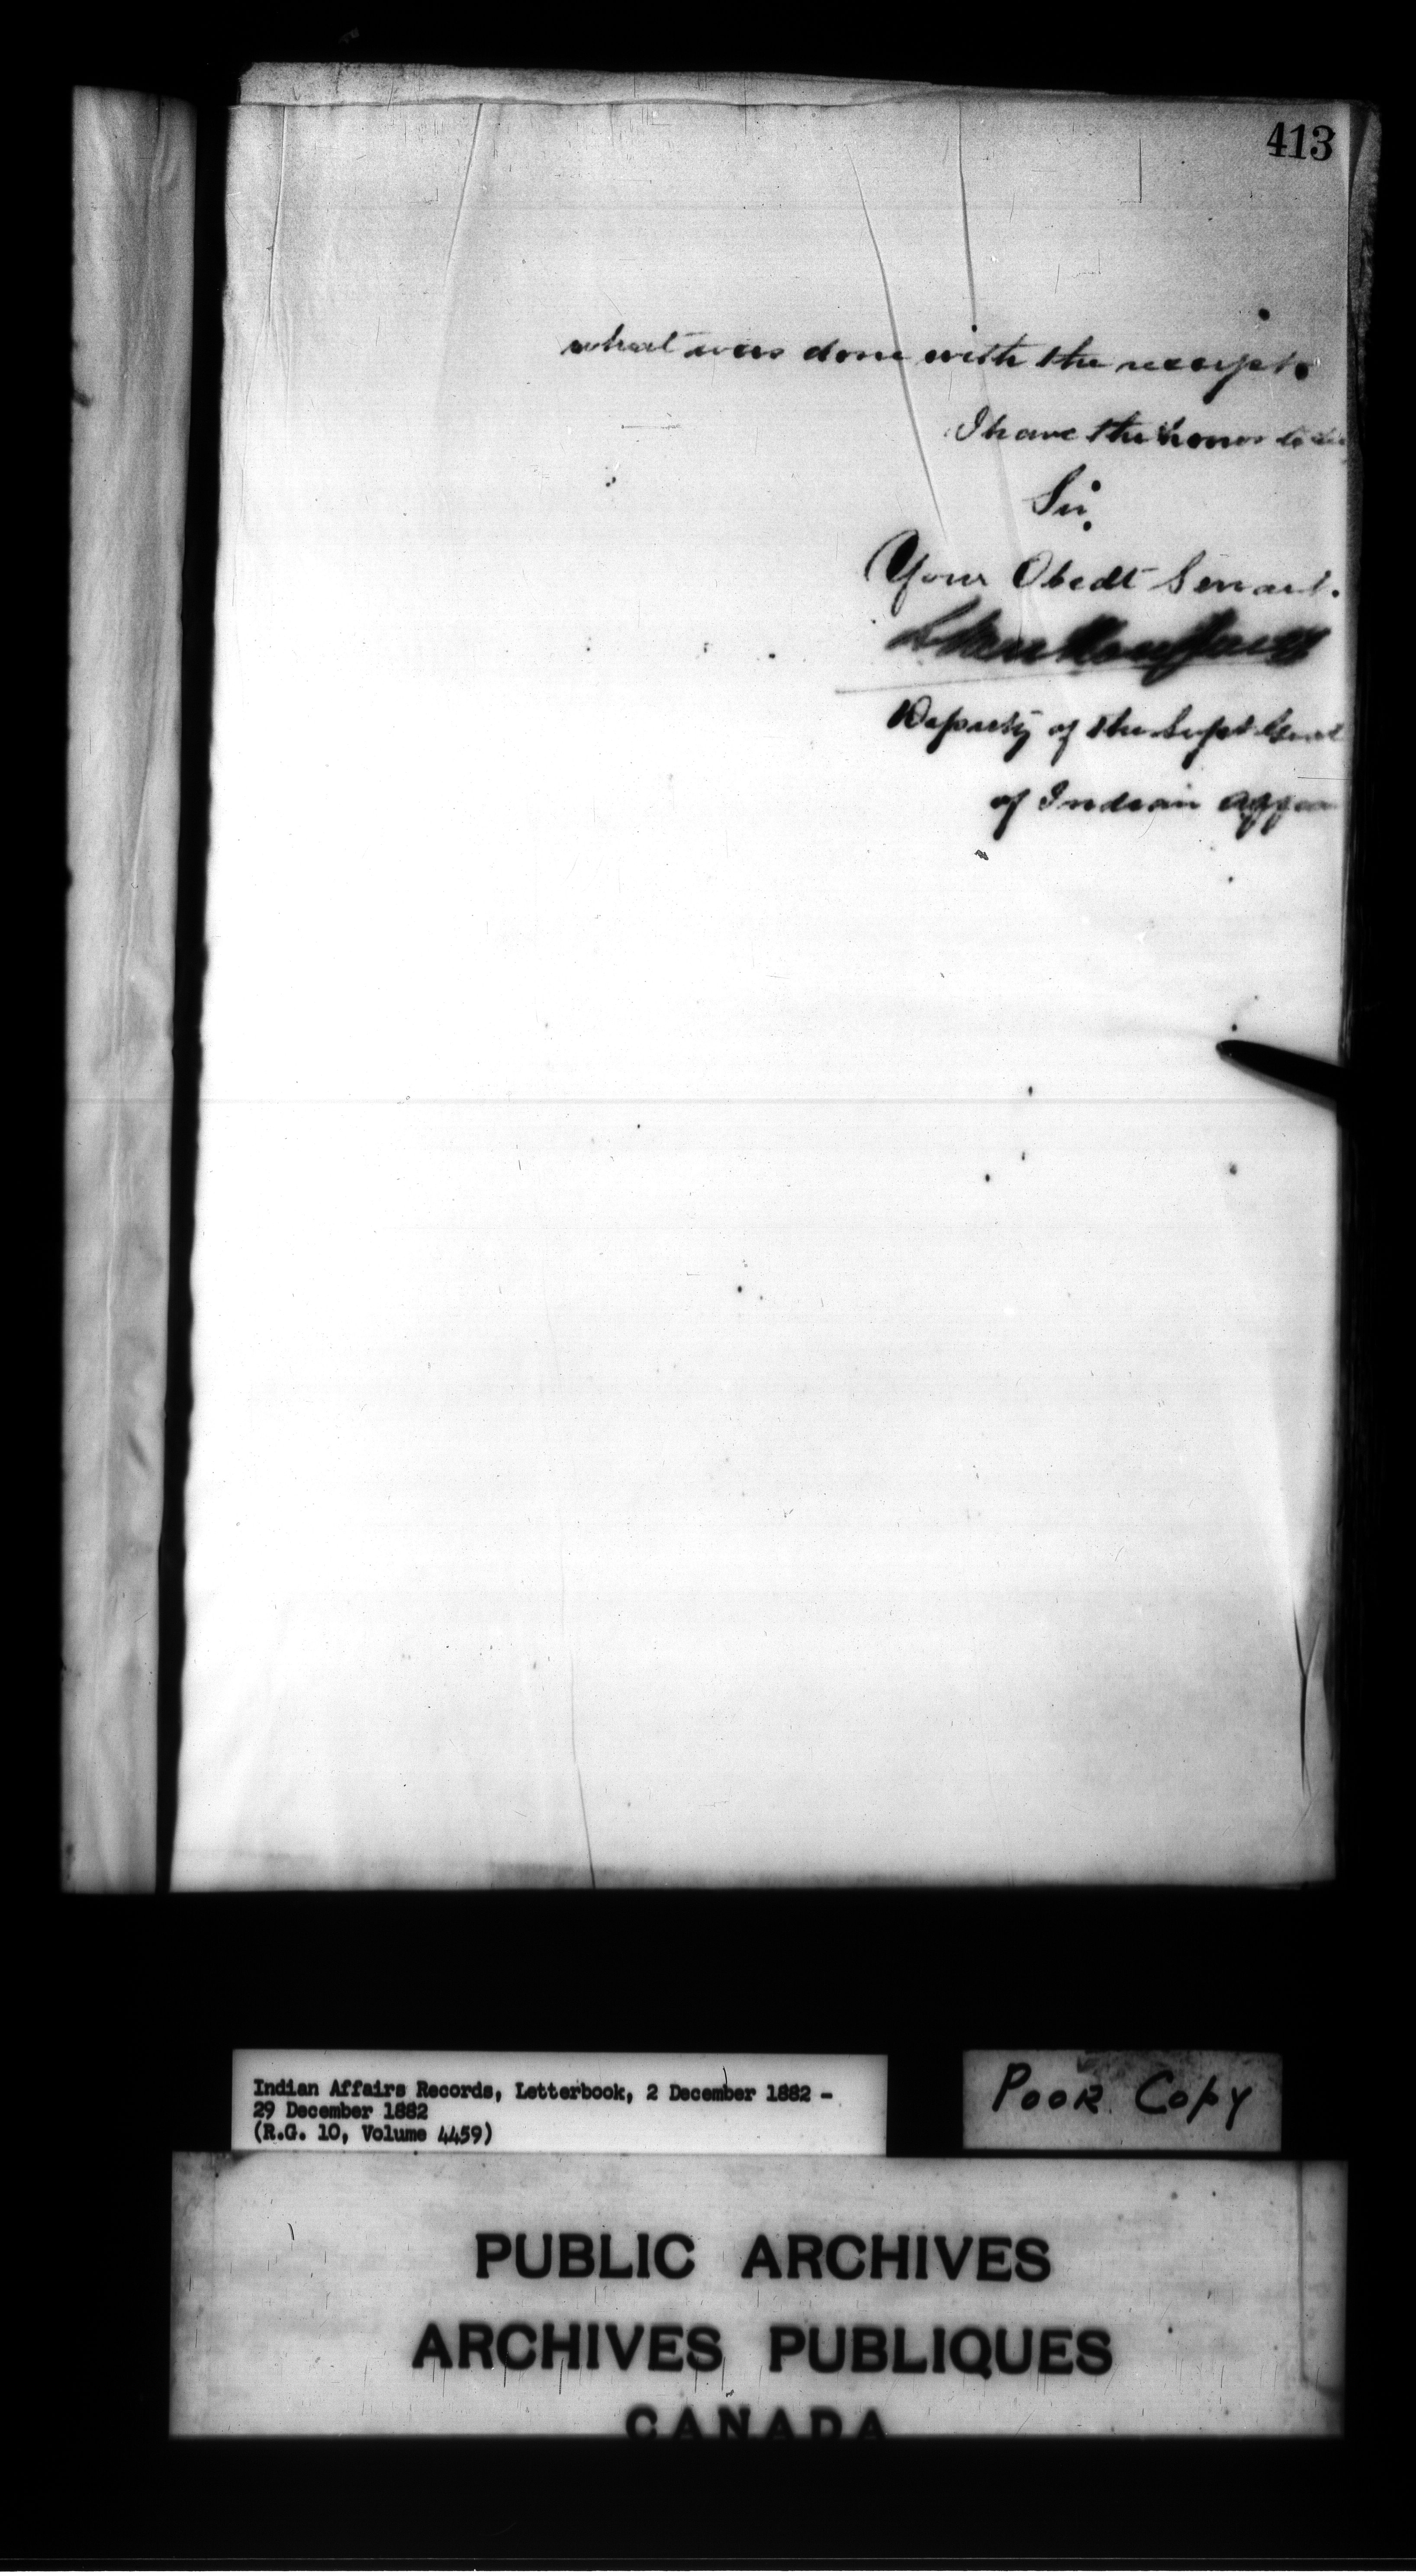 413
what was done with the receipt.
I have the honor to be
Sir,
Your Obedt Servant.
Deputy of the Supt Genl
of Indian Affai
Indian Affairs Records, Letterbook, 2 December 1882 -
29 December 1882
(R.G. 10, Volume 4459)
Poor Copy
PUBLIC ARCHIVES
ARCHIVES PUBLIQUES
CANADA